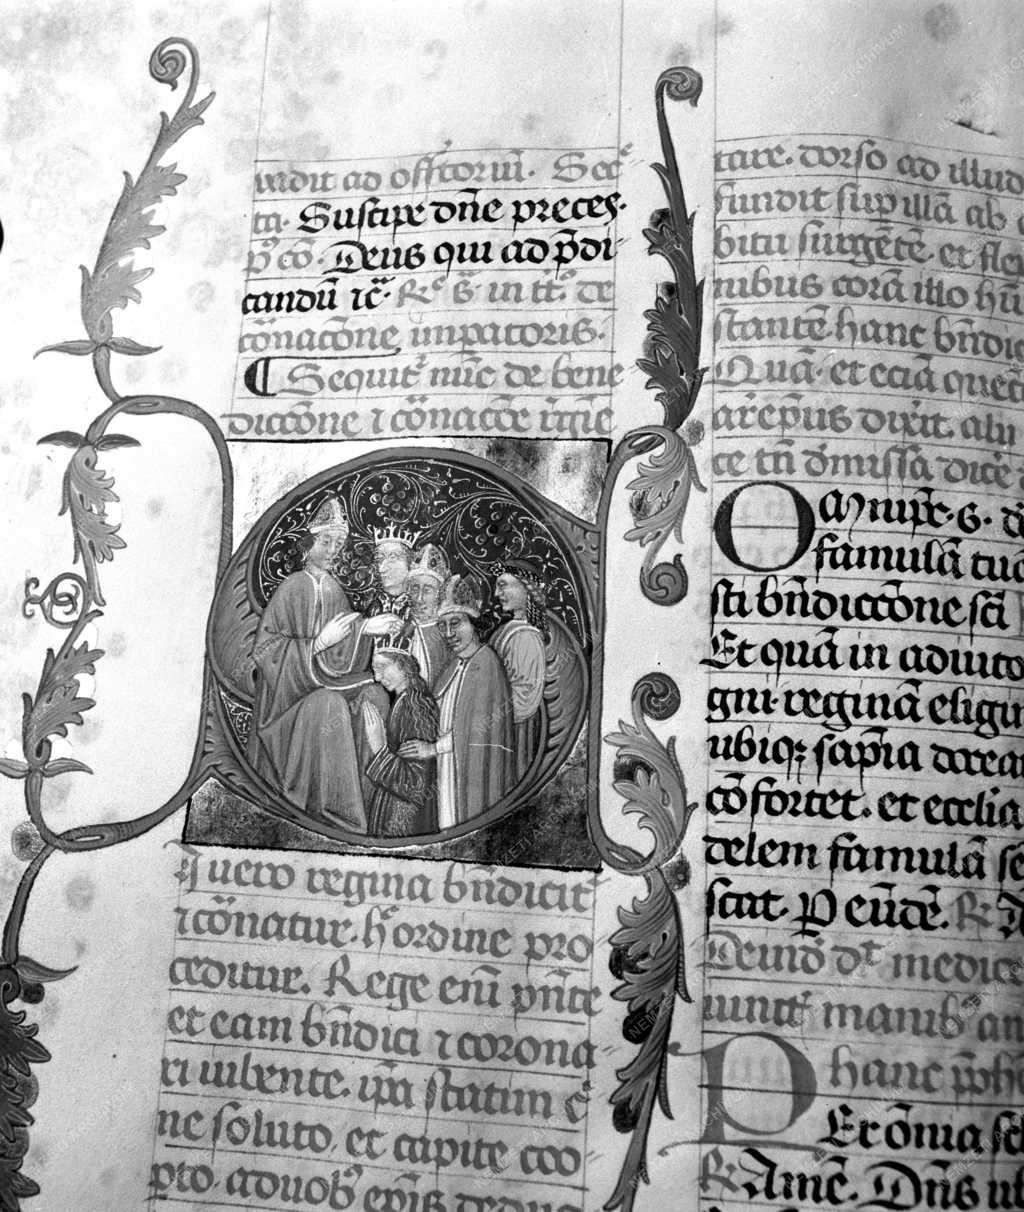 vadit ad offͥtoriū. Secͬ
ta. Suscipe dn̄e preces.
p̊ cō. Deus qui ad p̄di
candū ⁊c̄. Rͤ. s̄. in tͭ. de
cōnacōne impatoris.
¶ Sequitͬ nūc de bene
diccōne ⁊ cōnaccōe
Si uero regina bn̄dicitͬ
⁊ cōnatur. hͦ ordine pro
ceditur. Rege enī pn̄te
et eam bn̄dici ⁊ corona
ri iubente. ipa statim
ne soluto. et capite coo
pto. aduobꝰ ep̄is
tare. dorso ad illud
fundit sup illā ab
bitu surgētē. et fle
nibus corā illo
stantē hanc bn̄dic
Quā. et eciā
arep̄us dixit. alii
ce tn̄ dmissa dicē
Om̄ips. s. d
famulā tuā
sti bn̄diccōne scā
Et quā in adiuto
gni reginā eligi
ubiqꝫ sapīa
cōfortet. et ecclia
delem famulā
scat. P eūdē. R A
Deinđ dͭ medice
iunctͭ manibꝰ an
P hanc
Et om̄ia
R Amē. Dn̄s